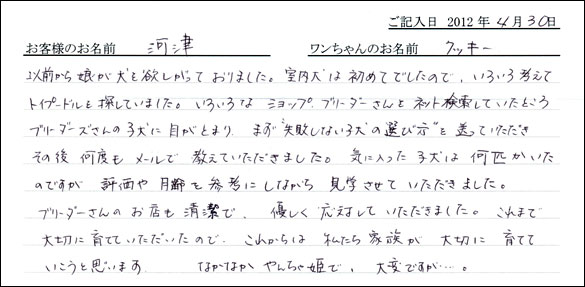 ご記入日 2012年4月30日
お客様のお名前 河津 ワンちゃんのお名前 クッキー
以前から娘が犬を欲しがっておりました。室内犬は初めてでしたので、いろいろ考えて
トイプードルを探していました。いろいろな ショップ、ブリーダーさんをネット検索していたところ
ブリーダーズさんの子犬に目がとまり、まず"失敗しない子犬の選び方"を送っていただき
その後 何度も メールで 教えていただきました。気に入った子犬は何匹かいた
のですが 評価や月齢を参考にしながら 見学させて いただきました。
ブリーダーさんの お店も 清潔で、優しく 応対していただきました。これまで
大切に育てていただいたので、これからは 私たち家族が 大切に 育てて
いこうと思います。 なかなか やんちゃ姫で、大変ですが…。